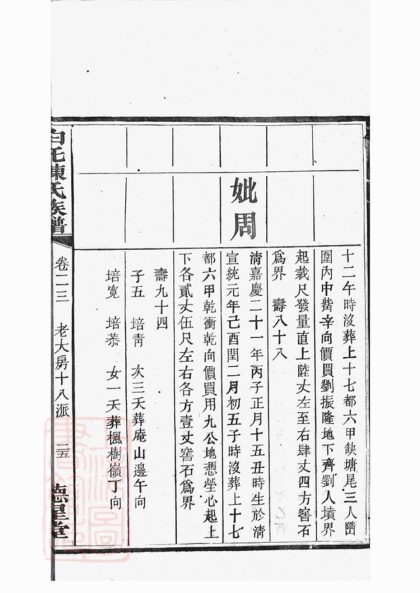 十二午時沒葬上十七都六甲鈌塘尾三人嶜
圍內中葬辛向價買劉振隆地下齊劉人墳界
起裁尺發量直上陸丈左至右肆丈四方窖石
爲界　壽八十八
妣周
清嘉慶二十一年丙子正月十五丑時生於清
宣統元年己酉閏二月初五子時沒葬上十七
都六甲乾衝乾向價買用九公地憑塋心起上
下各貳丈伍尺左右各方壹丈窖石爲界
壽九十四
子五　培靑　次三天葬庵山邊午向
培寬　培恭　女一天葬楓樹嶺丁向
白沱陳氏族譜
卷二三　老大房十八派　二五
德星堂